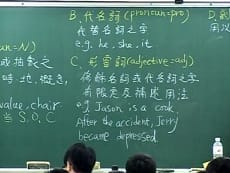 B. 代名詞 (pronoun=pro)
代替名詞之字
e.g. he, she, it
C. 形容詞 (adjective=adj)
修飾名詞或代名詞之字
有限定及補述用法
e.g. Jason is a cook.
After the accident, Jerry
became depressed.
un = N)
value, chair
當 S, O, C
D.